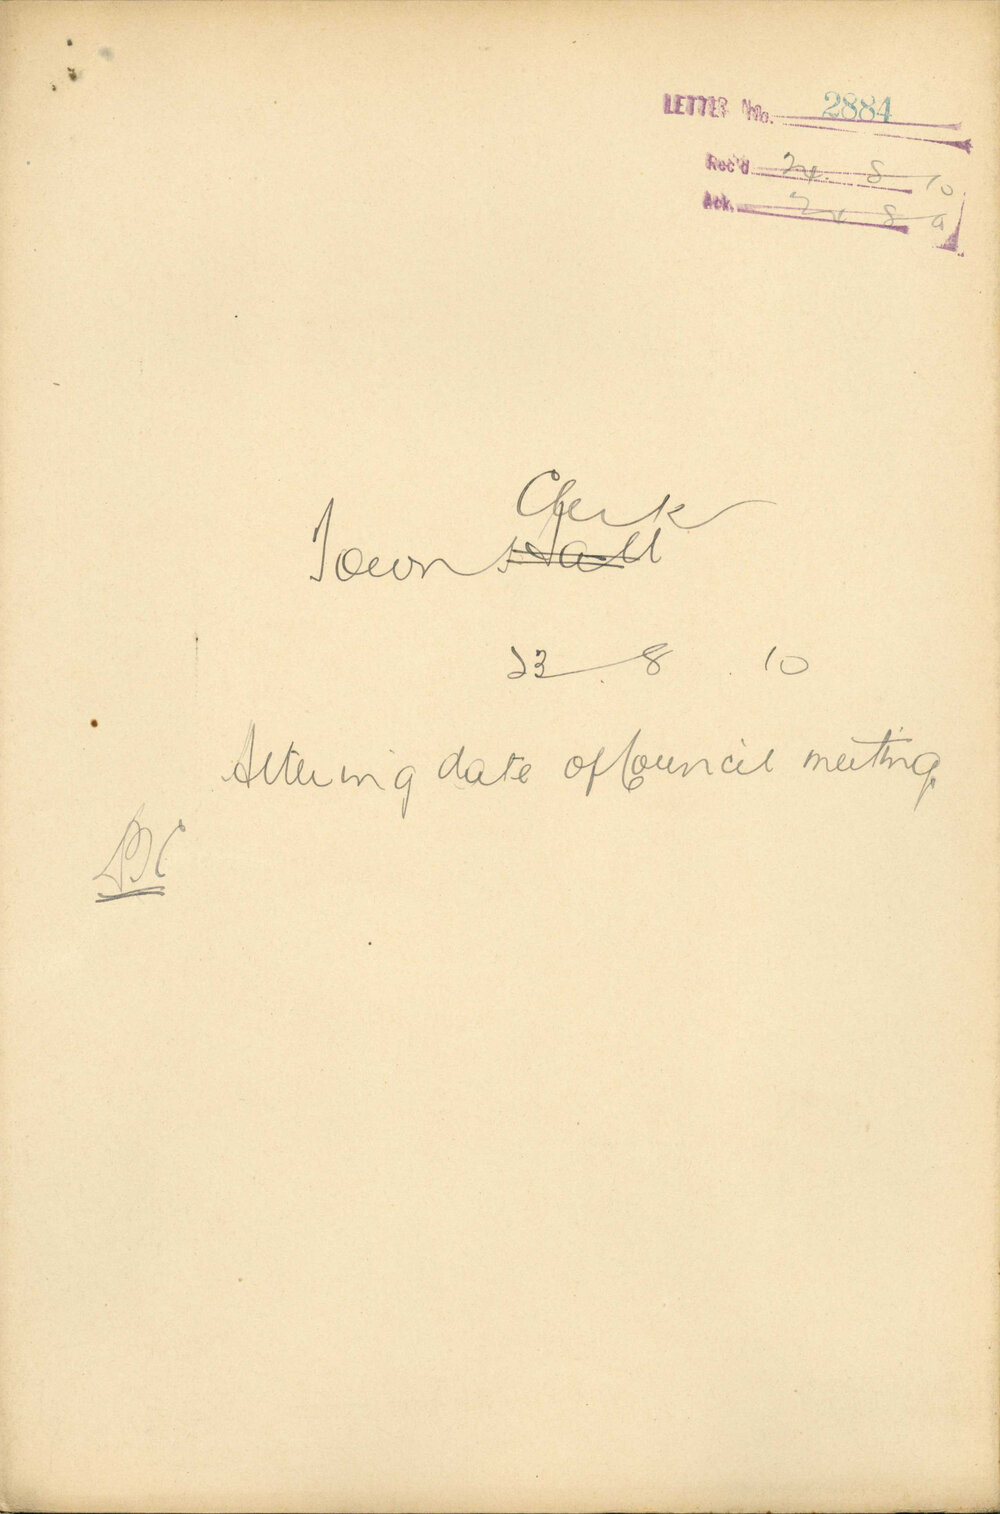 LETTER No. 2884
Rec'd 24. 8 10.
Ack. 24 8
Clerk
Town Hall
23. 8. 10
Altering date of Council meeting